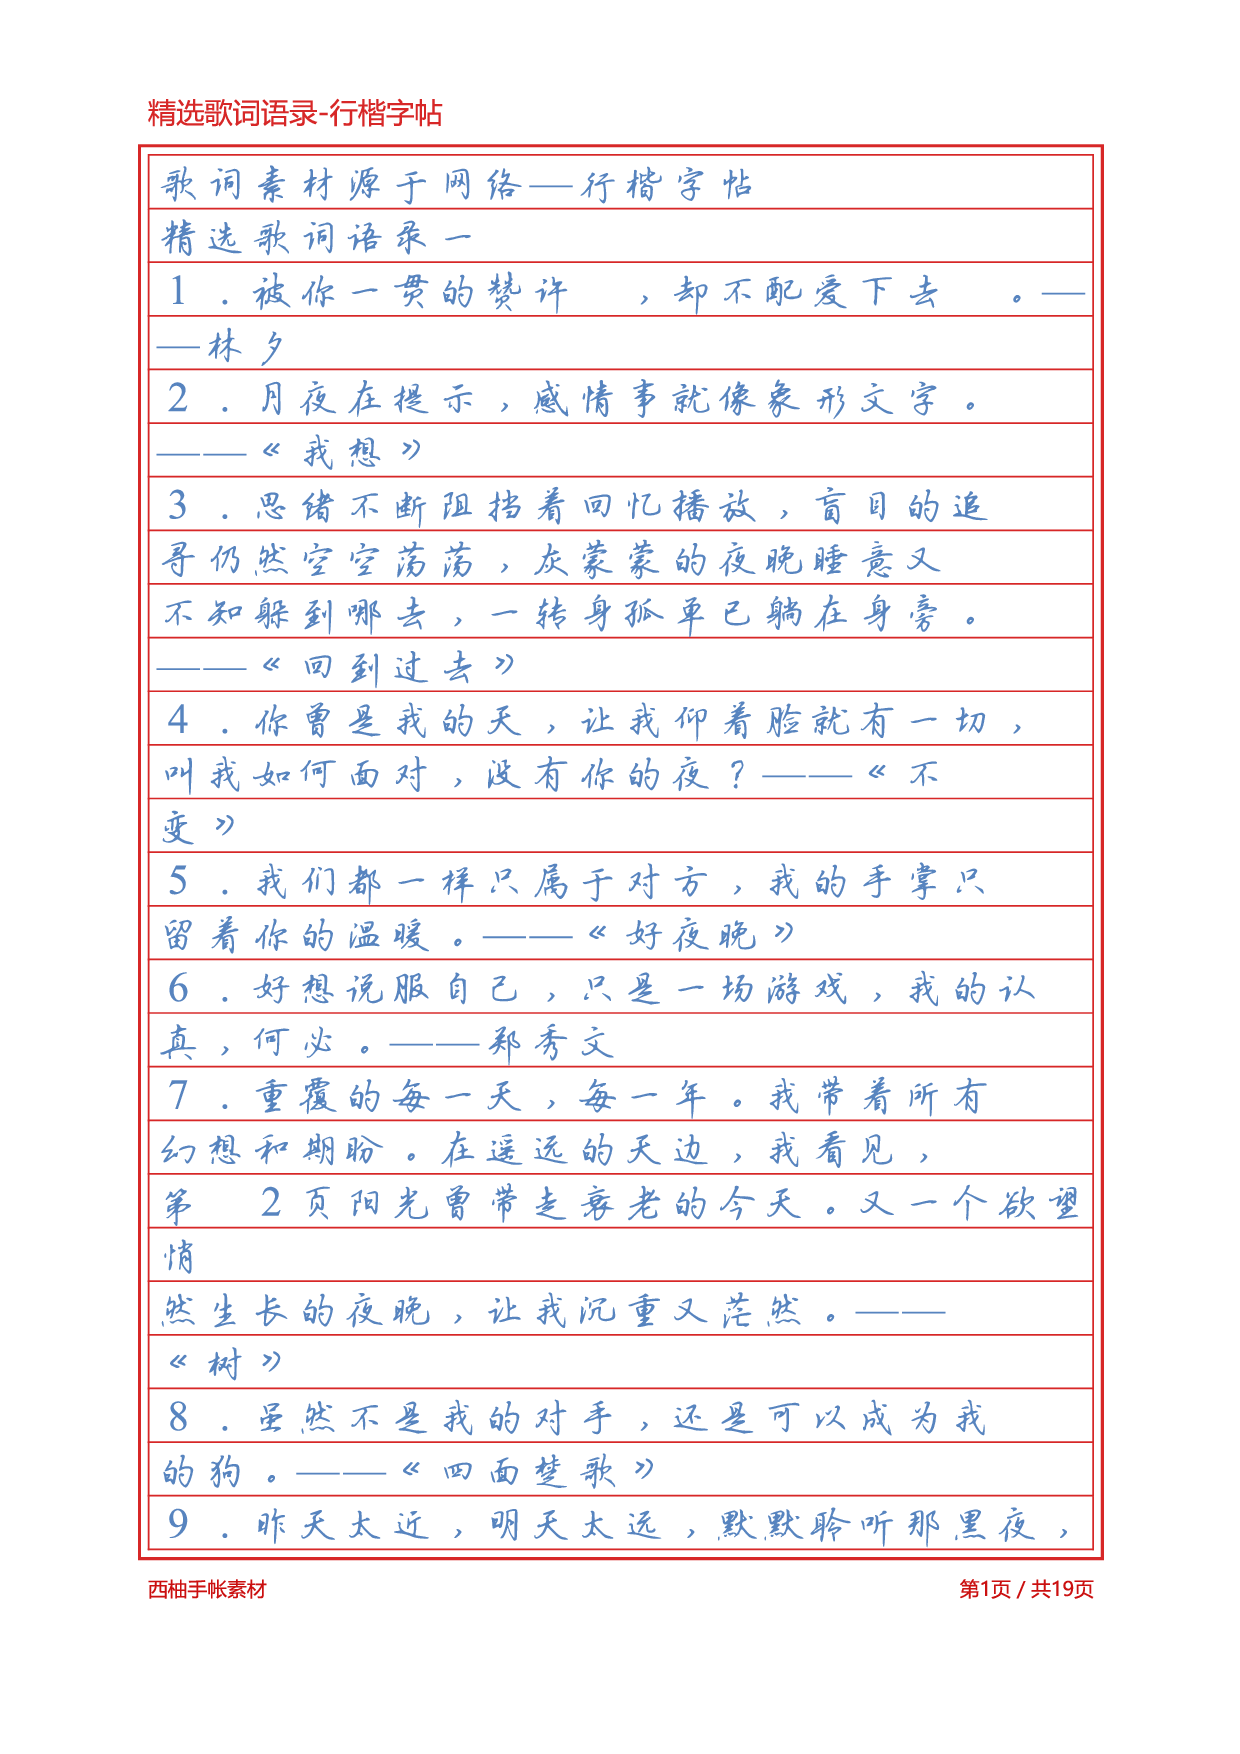 精选歌词语录-行楷字帖
歌词素材源于网络——行楷字帖
精选歌词语录一
1.被你一贯的赞许 ,却不配爱下去 。—
—林夕
2.月夜在提示,感情事就像象形文字。
——《我想》
3.思绪不断阻挡着回忆播放,盲目的追
寻仍然空空荡荡,灰蒙蒙的夜晚睡意又
不知躲到哪去,一转身孤单已躺在身旁。
——《回到过去》
4.你曾是我的天,让我仰着脸就有一切,
叫我如何面对,没有你的夜?——《不
变》
5.我们都一样只属于对方,我的手掌只
留着你的温暖。——《好夜晚》
6.好想说服自己,只是一场游戏,我的认
真,何必。——郑秀文
7.重覆的每一天,每一年。我带着所有
幻想和期盼。在遥远的天边,我看见,
第 2页阳光曾带走衰老的今天。又一个欲望
悄
然生长的夜晚,让我沉重又茫然。——
《树》
8.虽然不是我的对手,还是可以成为我
的狗。——《四面楚歌》
9.昨天太近,明天太远,默默聆听那黑夜,
西柚手帐素材
第1页 / 共19页